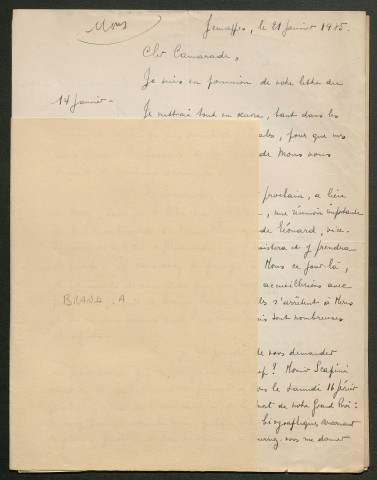 Mons
Jemappes, le 21 janvier 1935.
Cher Camarade,
Je suis en possession de votre lettre du
14 janvier.
Je mettrai tout en œuvre, tant dans les
pour que nos
de Mons nous
prochain, a lieu
une réunion importante
de Léonard, vice-
et y prendra
Mons ce jour-là,
accueillerions avec
s'arrêtent à Mons
sont nombreuses
BRANA. A.
vous demander
? Monsieur Scapini
le Samedi 16 février
de notre Grand
biographiques
vous me donner